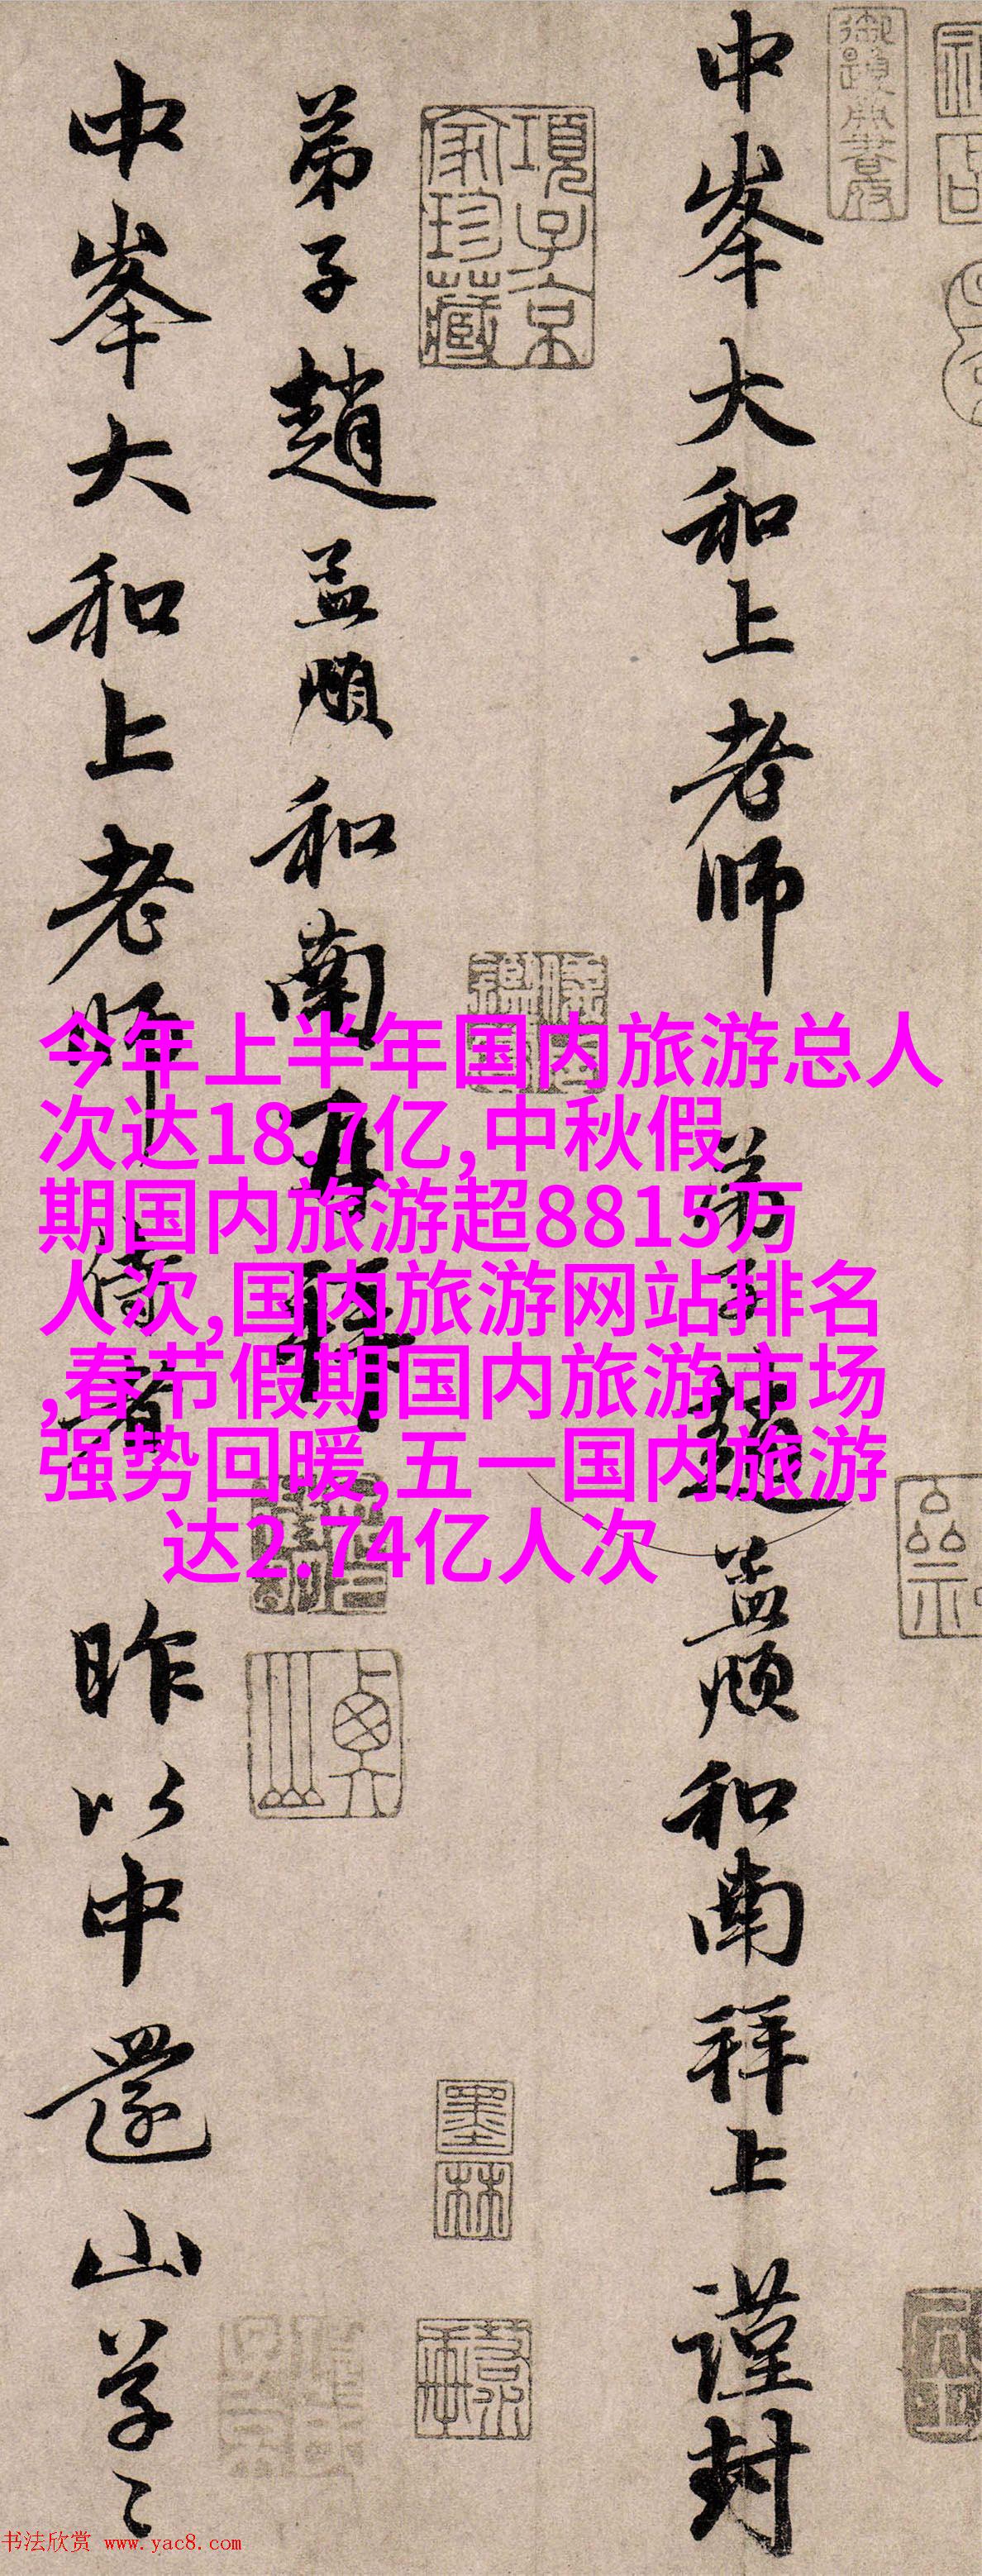 中峯大和上老师 弟子趙孟頫和南拜上 謹封
項子京
家珍藏
弟子趙孟頫和南再拜
墨
林
中峯大和上老师侍者 昨以中還山草々
今年上半年国内旅游总人
次达18.7亿,中秋假
期国内旅游超8815万
人次,国内旅游网站排名
,春节假期国内旅游市场
强势回暖,五一国内旅游
达2.74亿人次
书法欣赏 www.yac8.com